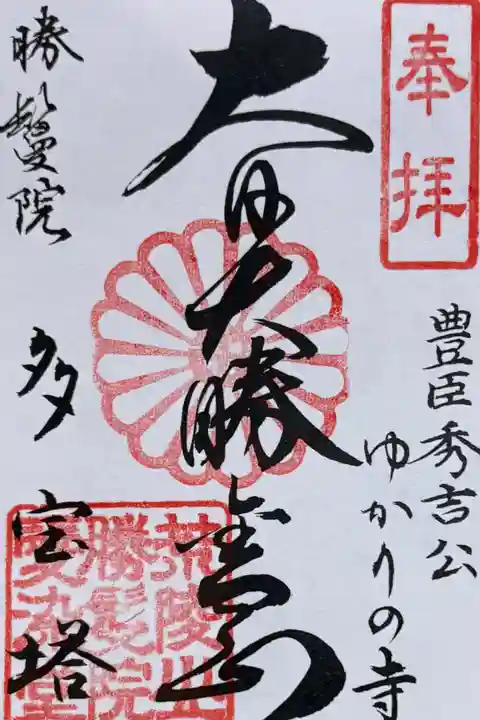 奉拝
豊臣秀吉公
ゆかりの寺
大日大勝金剛
勝鬘院
多宝塔
荒陵山
勝鬘院
愛染堂